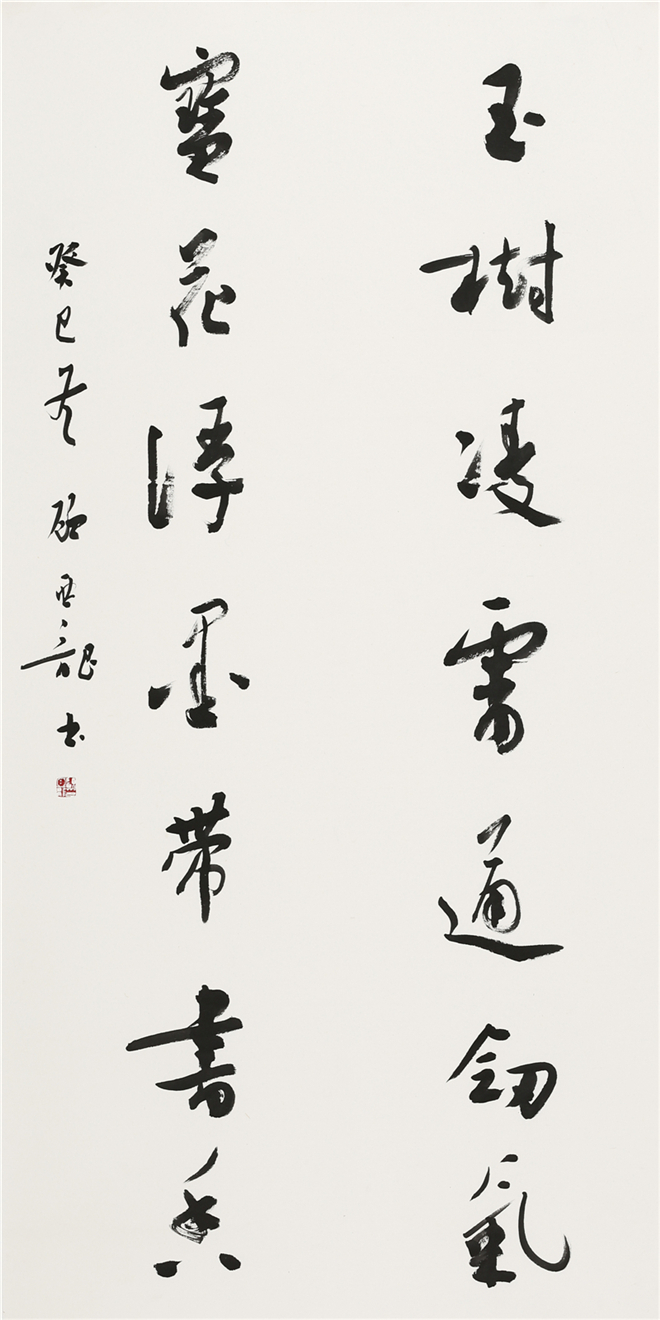 玉樹凌霄通劍氣
寶花浮墨帶書香
癸巳春 顧亞龍書